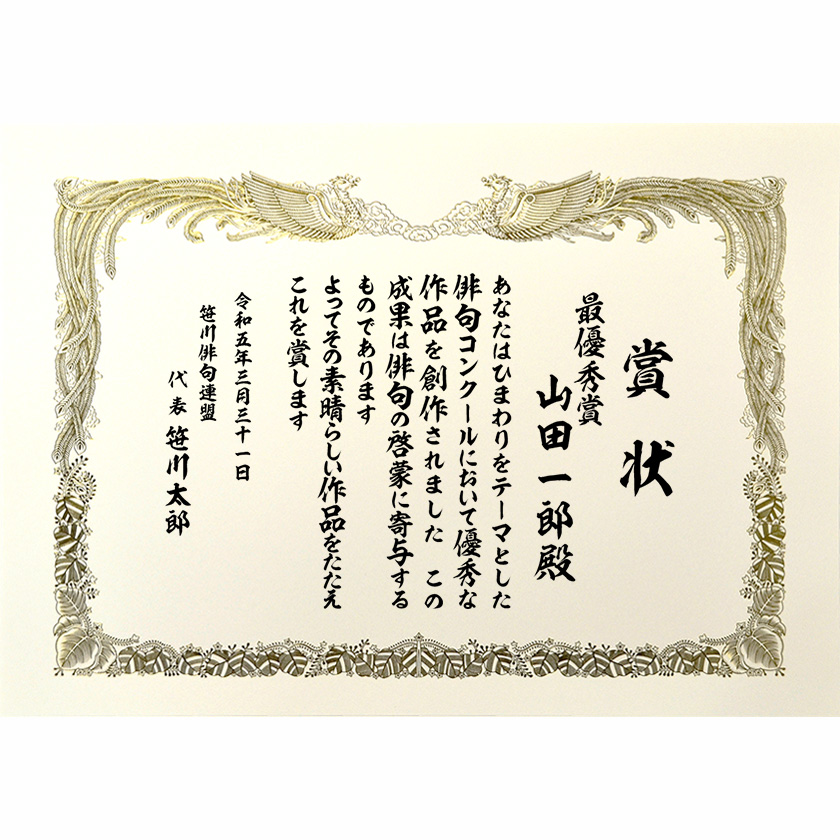 賞状
最優秀賞
山田一郎殿
あなたはひまわりをテーマとした
俳句コンクールにおいて優秀な
作品を創作されました　この
成果は俳句の啓蒙に寄与する
ものであります
よってその素晴らしい作品をたたえ
これを賞します
令和五年三月三十一日
笹川俳句連盟
代表　笹川太郎